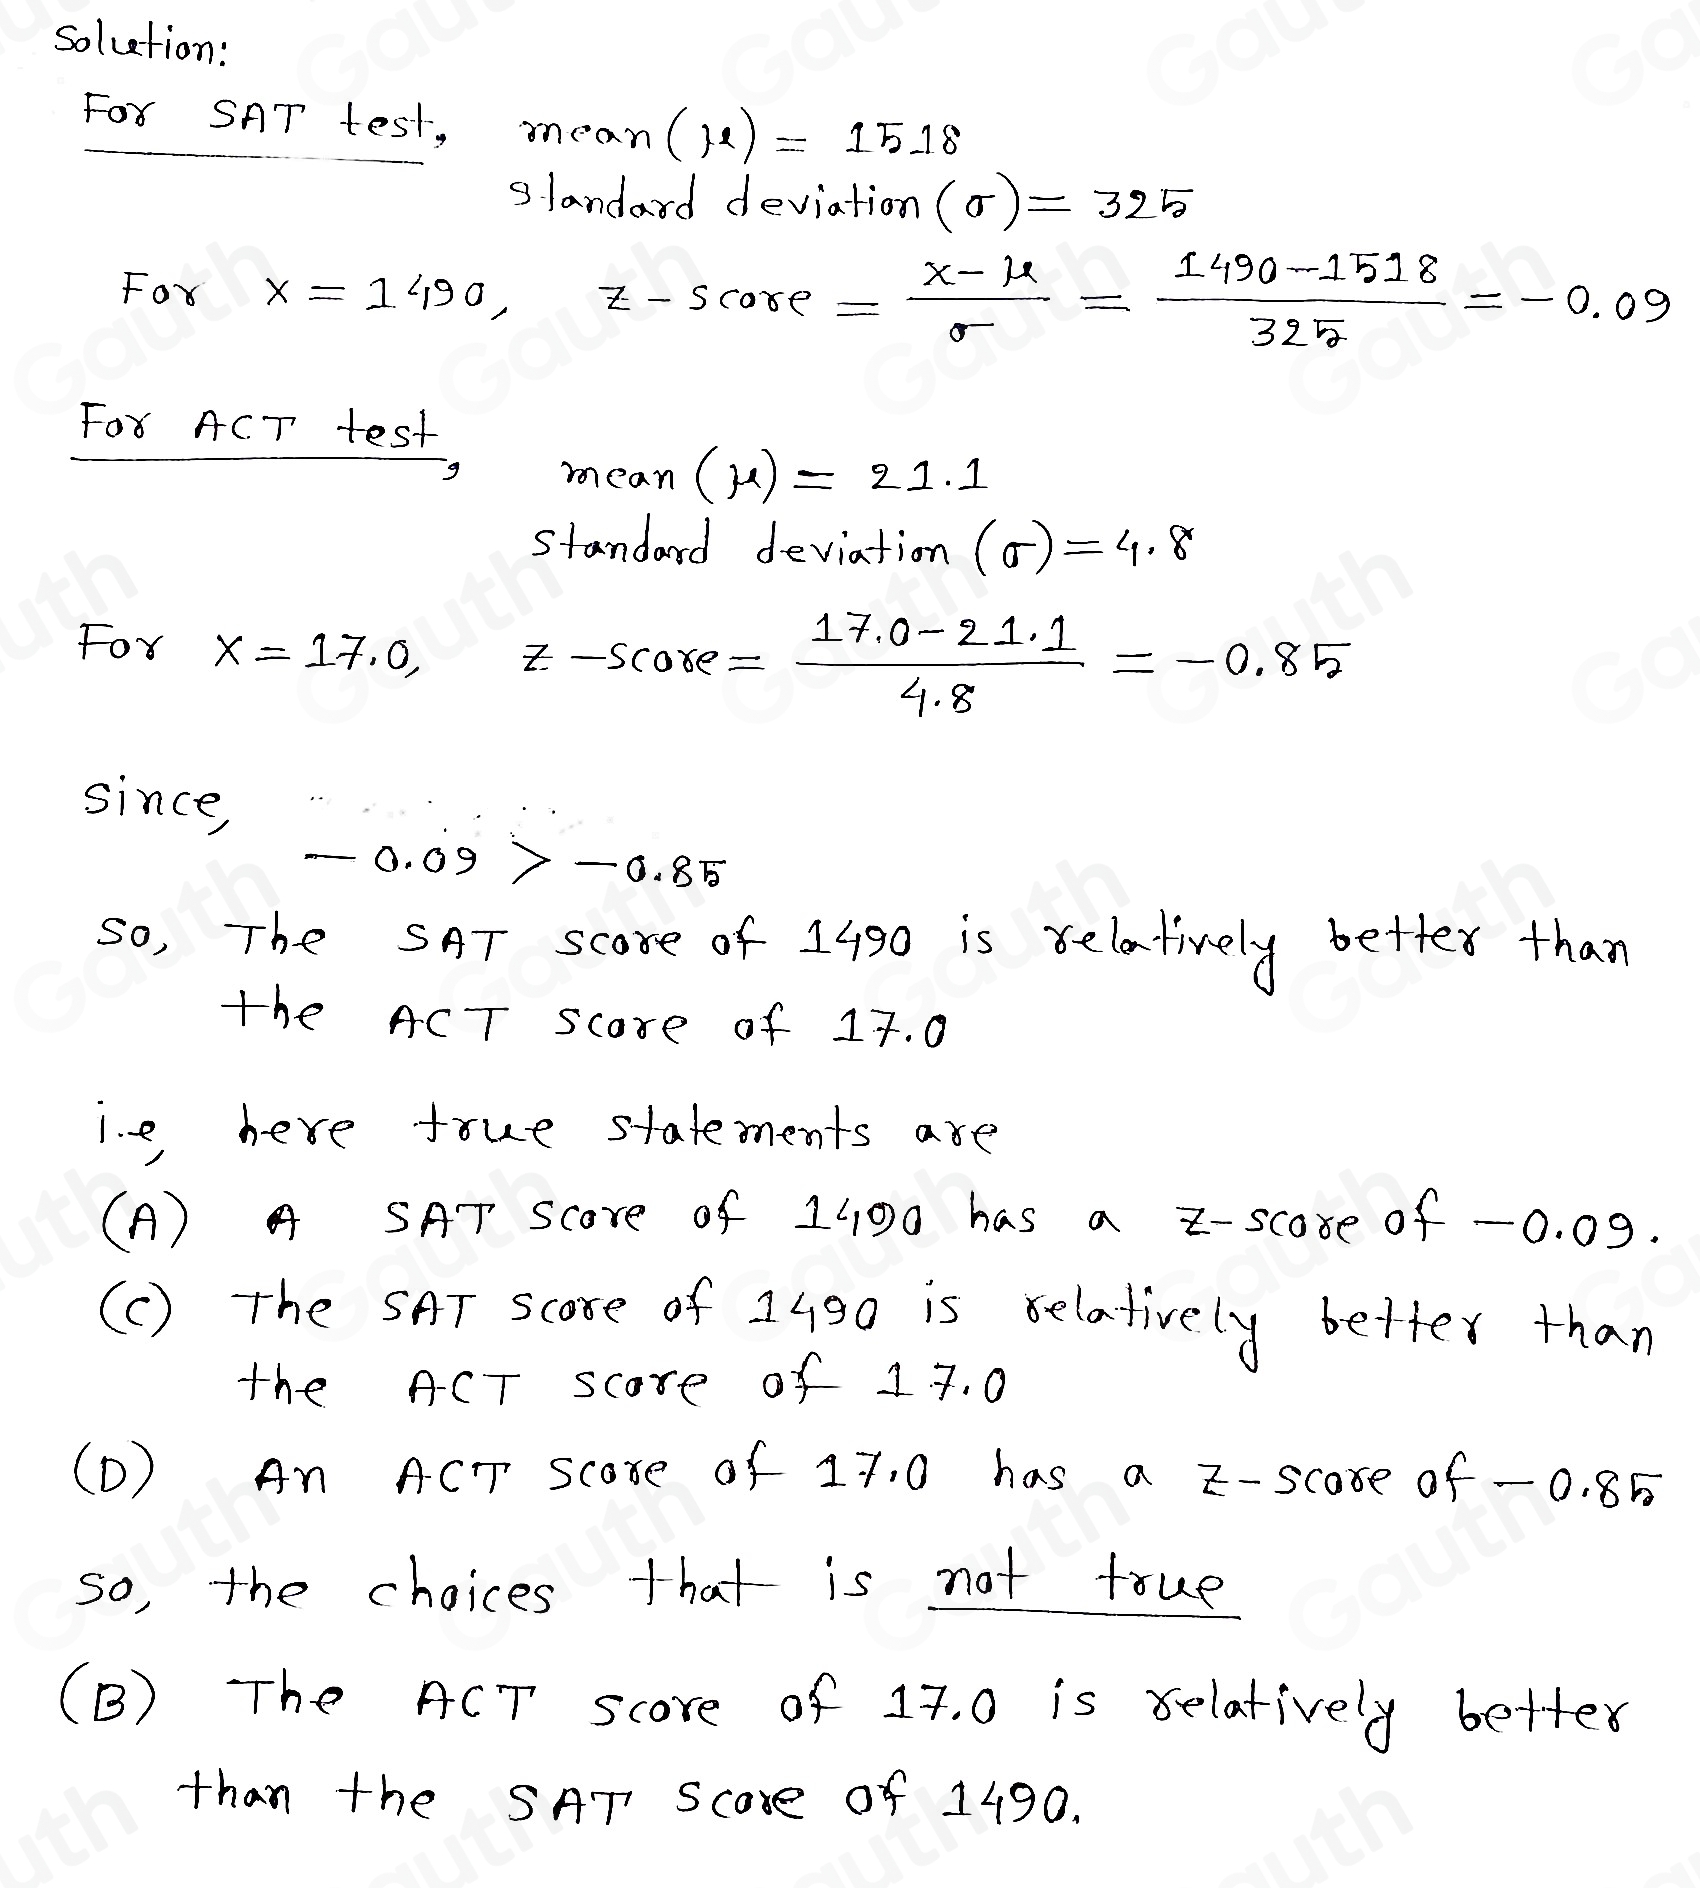 Solution:
For SAT test, mean (μ) = 1518
standard deviation (σ) = 325
For x = 1490, z - score = x - μ / σ = 1490 - 1518 / 325 = - 0.09
For ACT test, mean (μ) = 21.1
standard deviation (σ) = 4.8
For x = 17.0, z - score = 17.0 - 21.1 / 4.8 = - 0.85
since,
- 0.09 > - 0.85
so, The SAT score of 1490 is relatively better than
the ACT score of 17.0
i.e, here true statements are
(A) A SAT score of 1490 has a z-score of -0.09.
(C) The SAT score of 1490 is relatively better than
the ACT score of 17.0
(D) An ACT score of 17.0 has a z-score of -0.85
so, the choices that is not true
(B) The ACT score of 17.0 is relatively better
than the SAT score of 1490.
Gauth